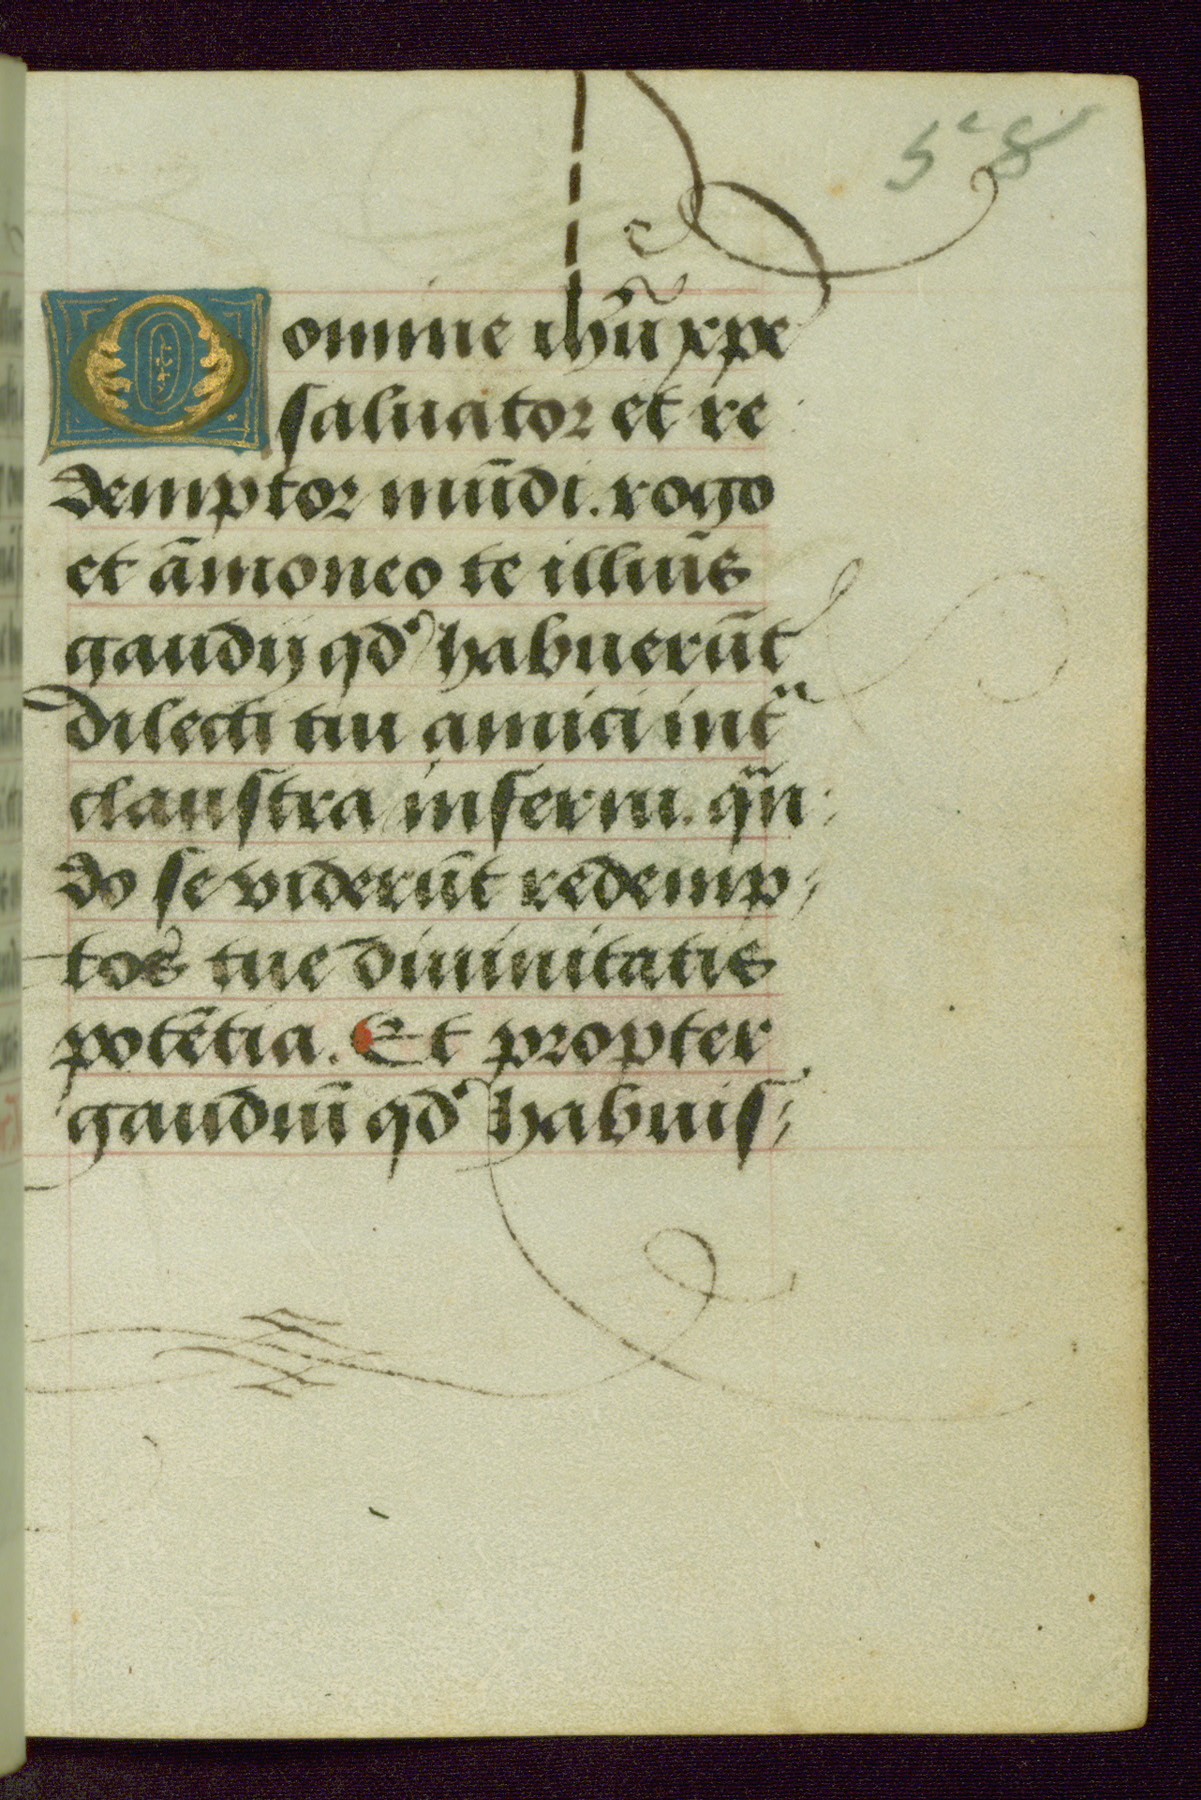 528
Domine ihũ xpe
saluator et re
demptor mũdi. rogo
et ãmoneo te illiuꝰs
gaudij qd' habuerũt
dilecti tui amici int̃
claustra inferni. qñ
do se viderũt redemp
tos tue diuinitatis
potẽtia. Et propter
gaudiũ qd' habuis